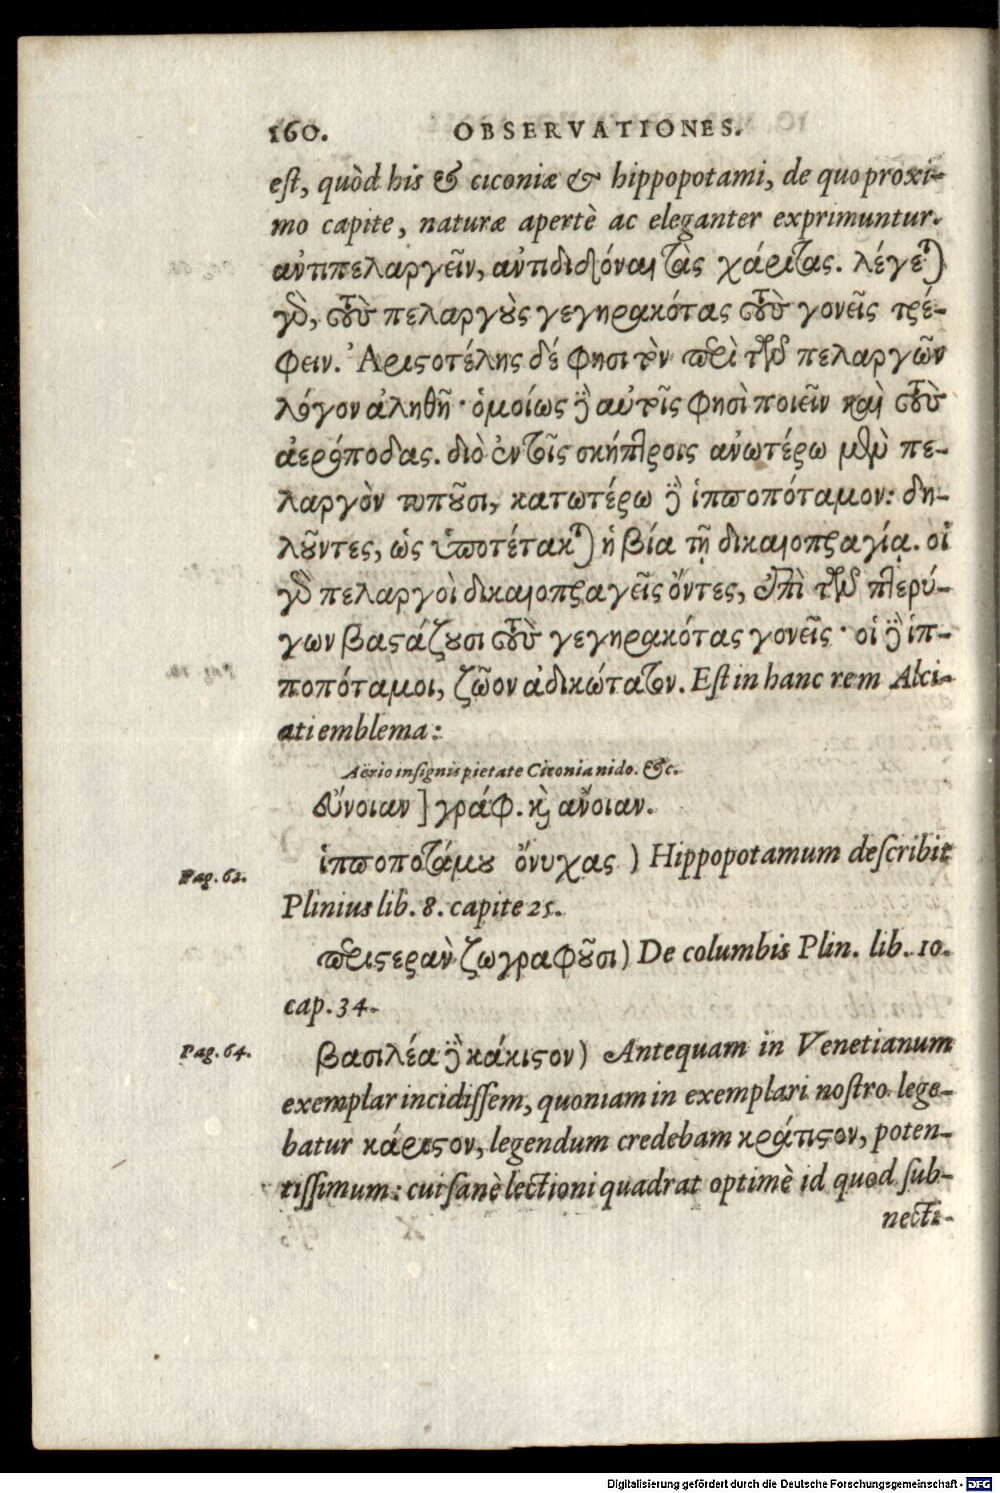 160. OBSERVATIONES.
est, quòd his & ciconiæ & hippopotami, de quo proxi-
mo capite, naturæ apertè ac eleganter exprimuntur.
ἀντιπελαργεῖν, ἀντιδιδόναι τὰς χάριτας. λέγεται
γὰρ, τοὺς πελαργοὺς γεγηρακότας τοὺς γονεῖς τρέ-
φειν. Ἀριστοτέλης δέ φησι τὸν περὶ τῶν πελαργῶν
λόγον ἀληθῆ· ὁμοίως δὲ αὐτοῖς φησὶ ποιεῖν καὶ τοὺς
ἀερόποδας. διὸ ἐν τοῖς σκήπτροις ἀνωτέρω μὲν πε-
λαργὸν τυποῦσι, κατωτέρω δὲ ἱπποπόταμον: δη-
λοῦντες, ὡς ὑποτέτακται ἡ βία τῇ δικαιοπραγίᾳ. οἱ
γὰρ πελαργοὶ δικαιοπραγεῖς ὄντες, ἐπὶ τῶν πτερύ-
γων βαστάζουσι τοὺς γεγηρακότας γονεῖς· οἱ δὲ ἱπ-
ποπόταμοι, ζῶον ἀδικώτατον. Est in hanc rem Alci-
ati emblema:
Aërio insignis pietate Ciconia nido. &c.
εὔνοιαν ] γράφ. καὶ ἄνοιαν.
ἱπποποτάμου ὄνυχας ) Hippopotamum describit
Pag. 62.
Plinius lib. 8. capite 25.
περιστερὰν ζωγραφοῦσι) De columbis Plin. lib. 10.
cap. 34.
Pag. 64.
βασιλέα δὲ κάκιστον) Antequam in Venetianum
exemplar incidissem, quoniam in exemplari nostro lege-
batur κάριστον, legendum credebam κράτιστον, poten-
tissimum: cui sanè lectioni quadrat optimè id quod sub-
necti-
Digitalisierung gefördert durch die Deutsche Forschungsgemeinschaft - DFG